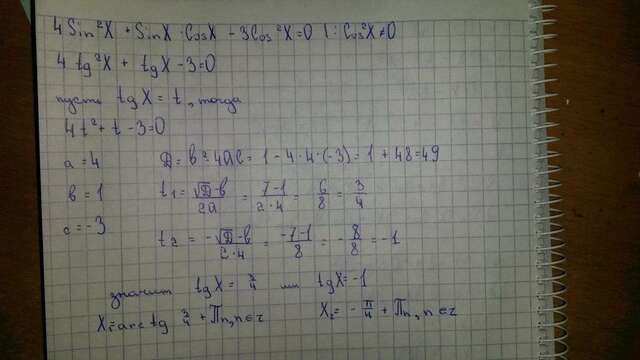 4 Sin²X + SinX · CosX - 3Cos²X = 0 | : Cos²X ≠ 0
4 tg²X + tgX - 3 = 0
пусть tgX = t, тогда
4t² + t - 3 = 0
a = 4 D = b² - 4ac = 1 - 4 · 4 · (-3) = 1 + 48 = 49
b = 1 t₁ = (√D - b)/(2a) = (7 - 1)/(2 · 4) = 6/8 = 3/4
c = -3 t₂ = (-√D - b)/(2 · 4) = (-7 - 1)/8 = -8/8 = -1
значит tgX = 3/4 или tgX = -1
X₁ = arctg 3/4 + Πn, n ∈ z X₂ = -π/4 + Πn, n ∈ z